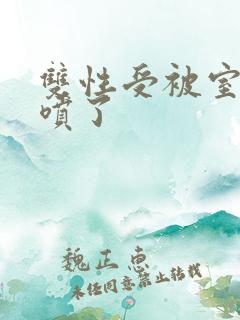 雙性受被室
噴了
魏正惠
未经同意禁止转载